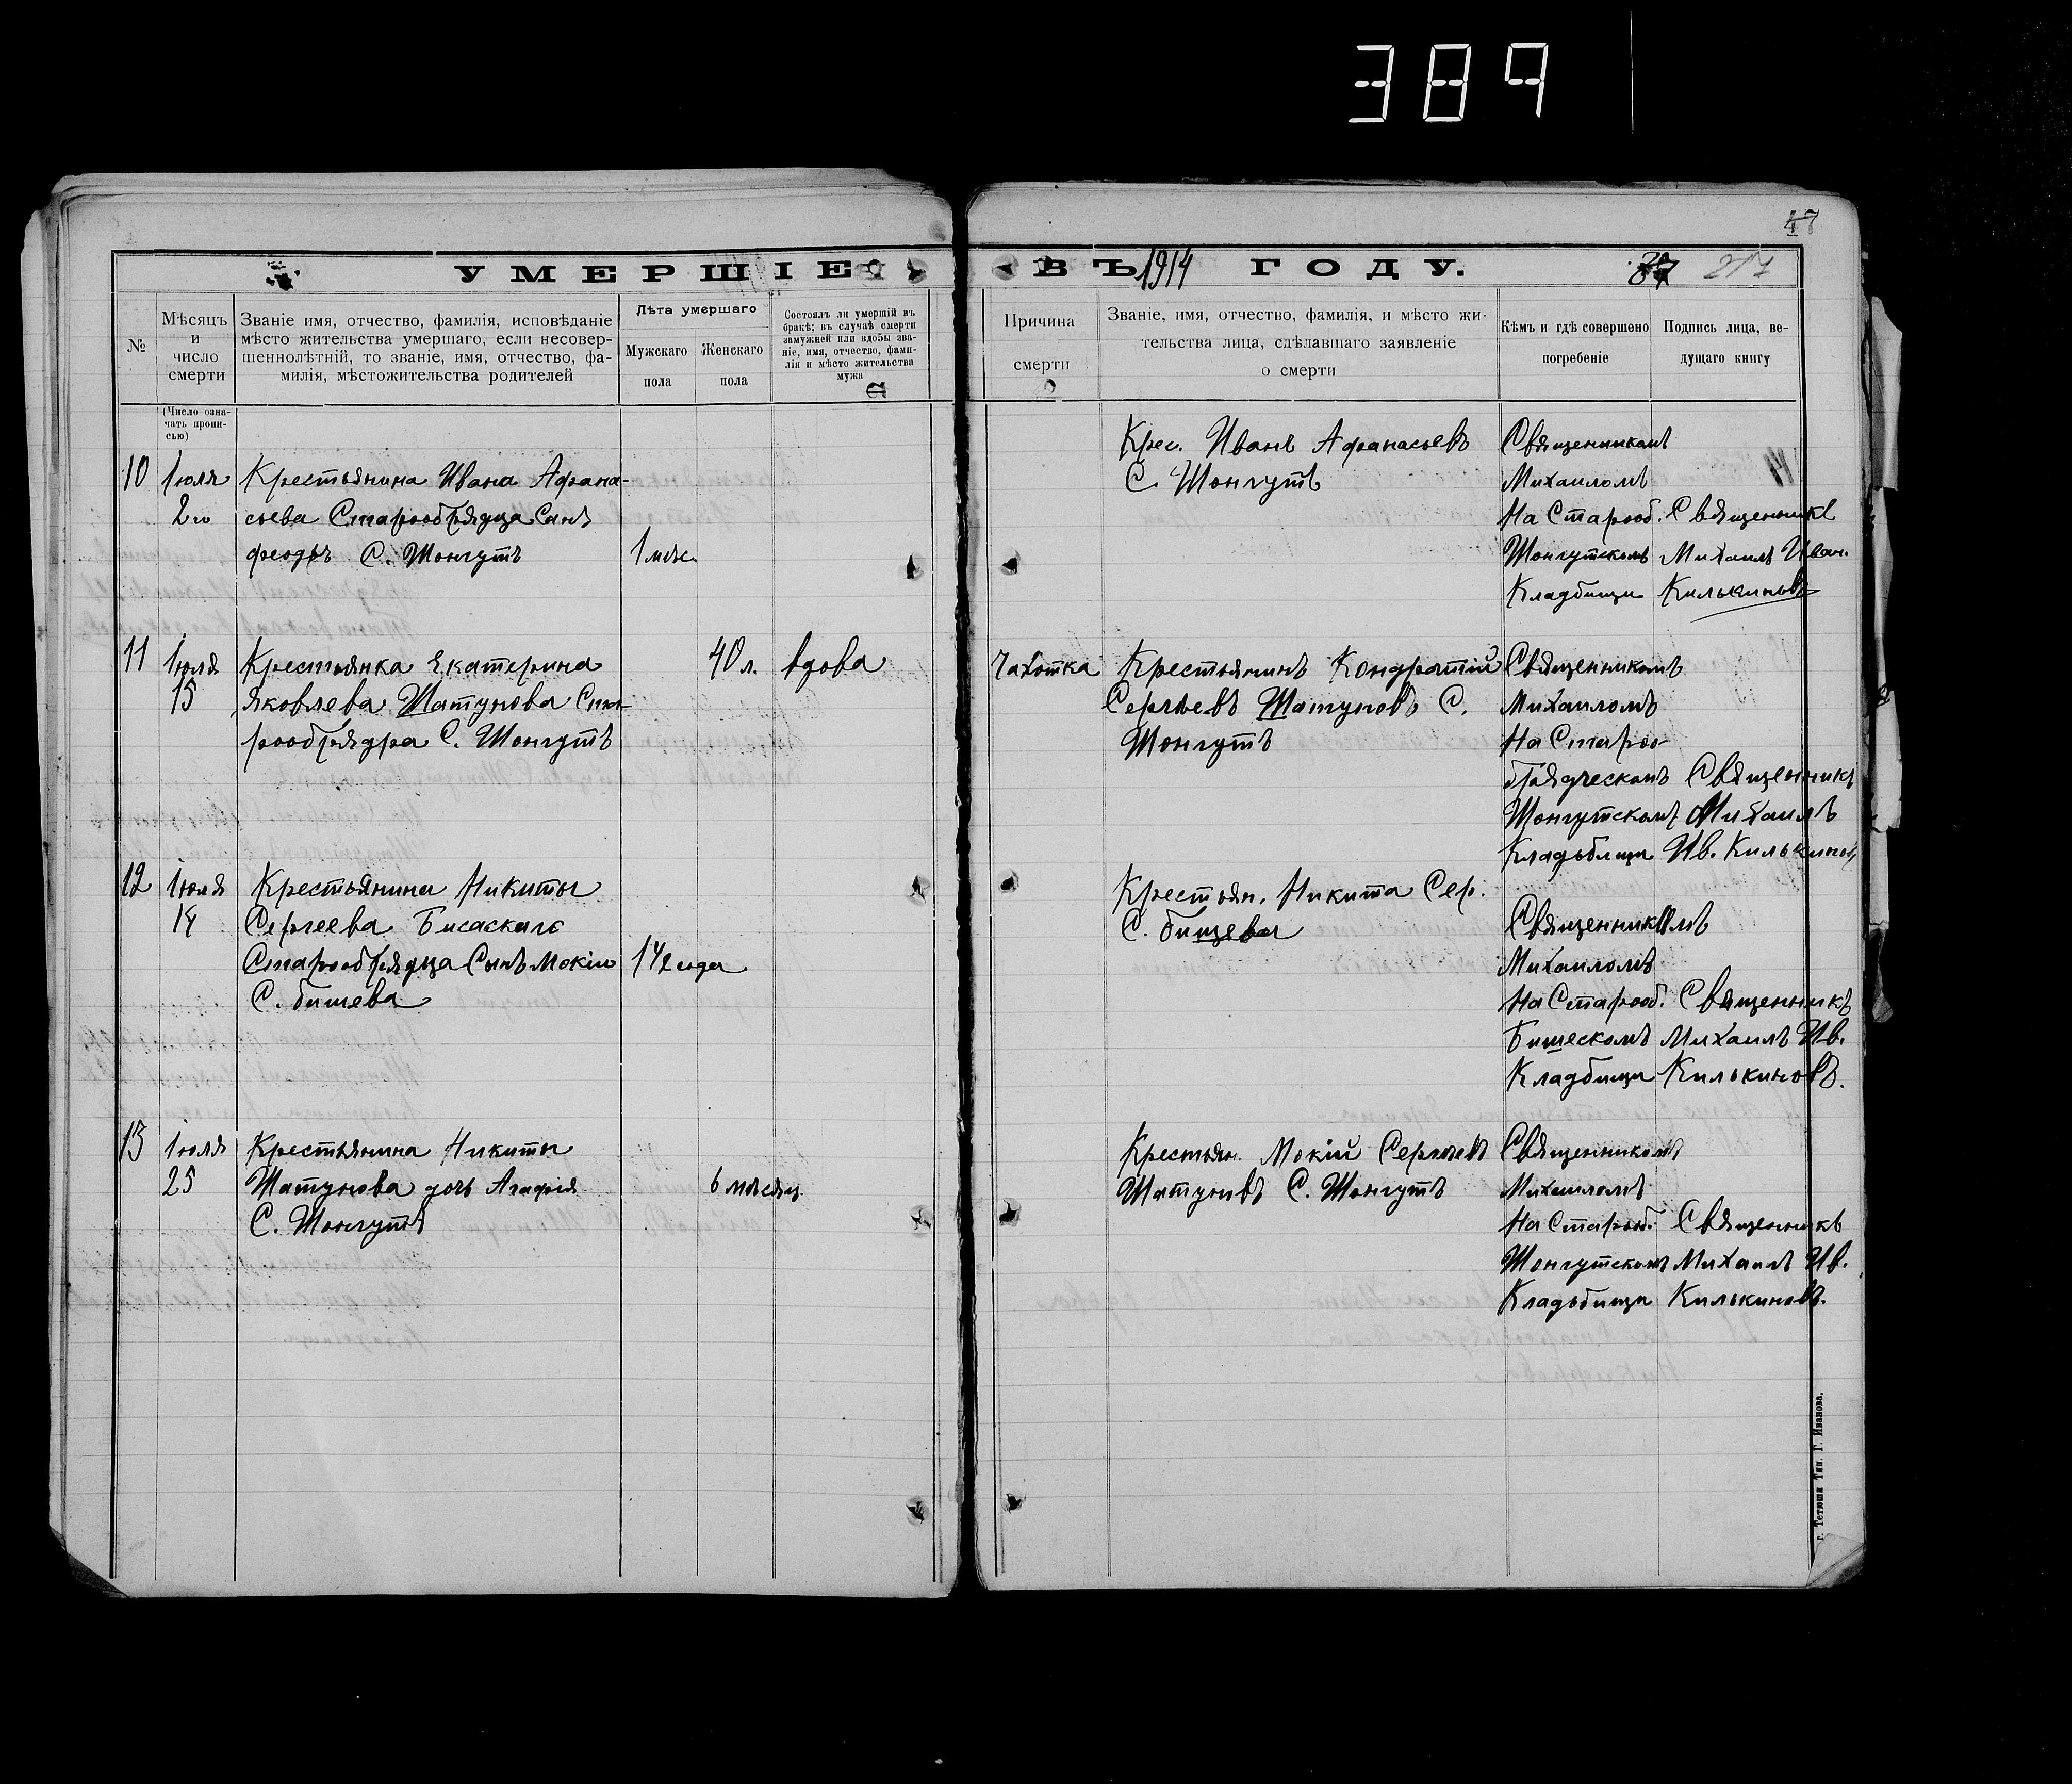 389
47
УМЕРШІЕ ВЪ 1914 ГОДУ.
217
№
Мѣсяцъ
и
число
смерти
(Число озна-
чать пропи-
сью)
Званіе имя, отчество, фамилія, исповѣданіе
мѣсто жительства умершаго, если несовер-
шеннолѣтній, то званіе, имя, отчество, фа-
милія, мѣстожительства родителей
Лѣта умершаго
Мужскаго
пола
Женскаго
пола
Состоялъ ли умершій въ
бракѣ; въ случаѣ смерти
замужней или вдовы зва-
ніе, имя, отчество, фами-
лія и мѣсто жительства
мужа
Причина
смерти
Званіе, имя, отчество, фамилія, и мѣсто жи-
тельства лица, сдѣлавшаго заявленіе
о смерти
Кѣмъ и гдѣ совершено
погребеніе
Подпись лица, ве-
дущаго книгу
10
Іюля
2го
Крестьянина Ивана Афана-
сьева Старообрядца Сынъ
С. Шонгутъ
1 мѣс.
Крес. Иванъ Афанасьевъ
С. Шонгутъ
Священникомъ
Михаиломъ
На Старооб.
Шонгутскомъ
Кладбищи
Священникъ
Михаилъ Иван.
Килькиновъ
11
Іюля
15
Крестьянка Екатерина
Яковлева Шатунова Ста-
рообрядра С. Шонгутъ
40 л.
вдова
Чахотка
Крестьянинъ Кондратій
Сергѣевъ Шатуновъ С.
Шонгутъ
Священникомъ
Михаиломъ
На Старо-
брядческомъ
Шонгутскомъ
Кладьбищи
Священникъ
Михаилъ
Ив. Килькиновъ
12
Іюля
14
Крестьянина Никиты
Сергеева
Старообрядца Сынъ Мокій
С. бишева
1 1/2 года
Крестьян. Никита Сер.
С. бищева
Священникомъ
Михаиломъ
На Старооб.
Бишескомъ
Кладбищи
Священникъ
Михаилъ Ив.
Килькиновъ.
13
Іюля
25
Крестьянина Никиты
Шатунова дочь Агафія
С. Шонгутъ
6 мѣсяц.
Крестьян. Мокій Сергѣевъ
Шатуновъ С. Шонгутъ
Священникомъ
Михаиломъ
На Старооб.
Шонгутскомъ
Кладьбищи
Священникъ
Михаилъ Ив.
Килькиновъ.
г. Тетюши Тип. Г. Иванова.